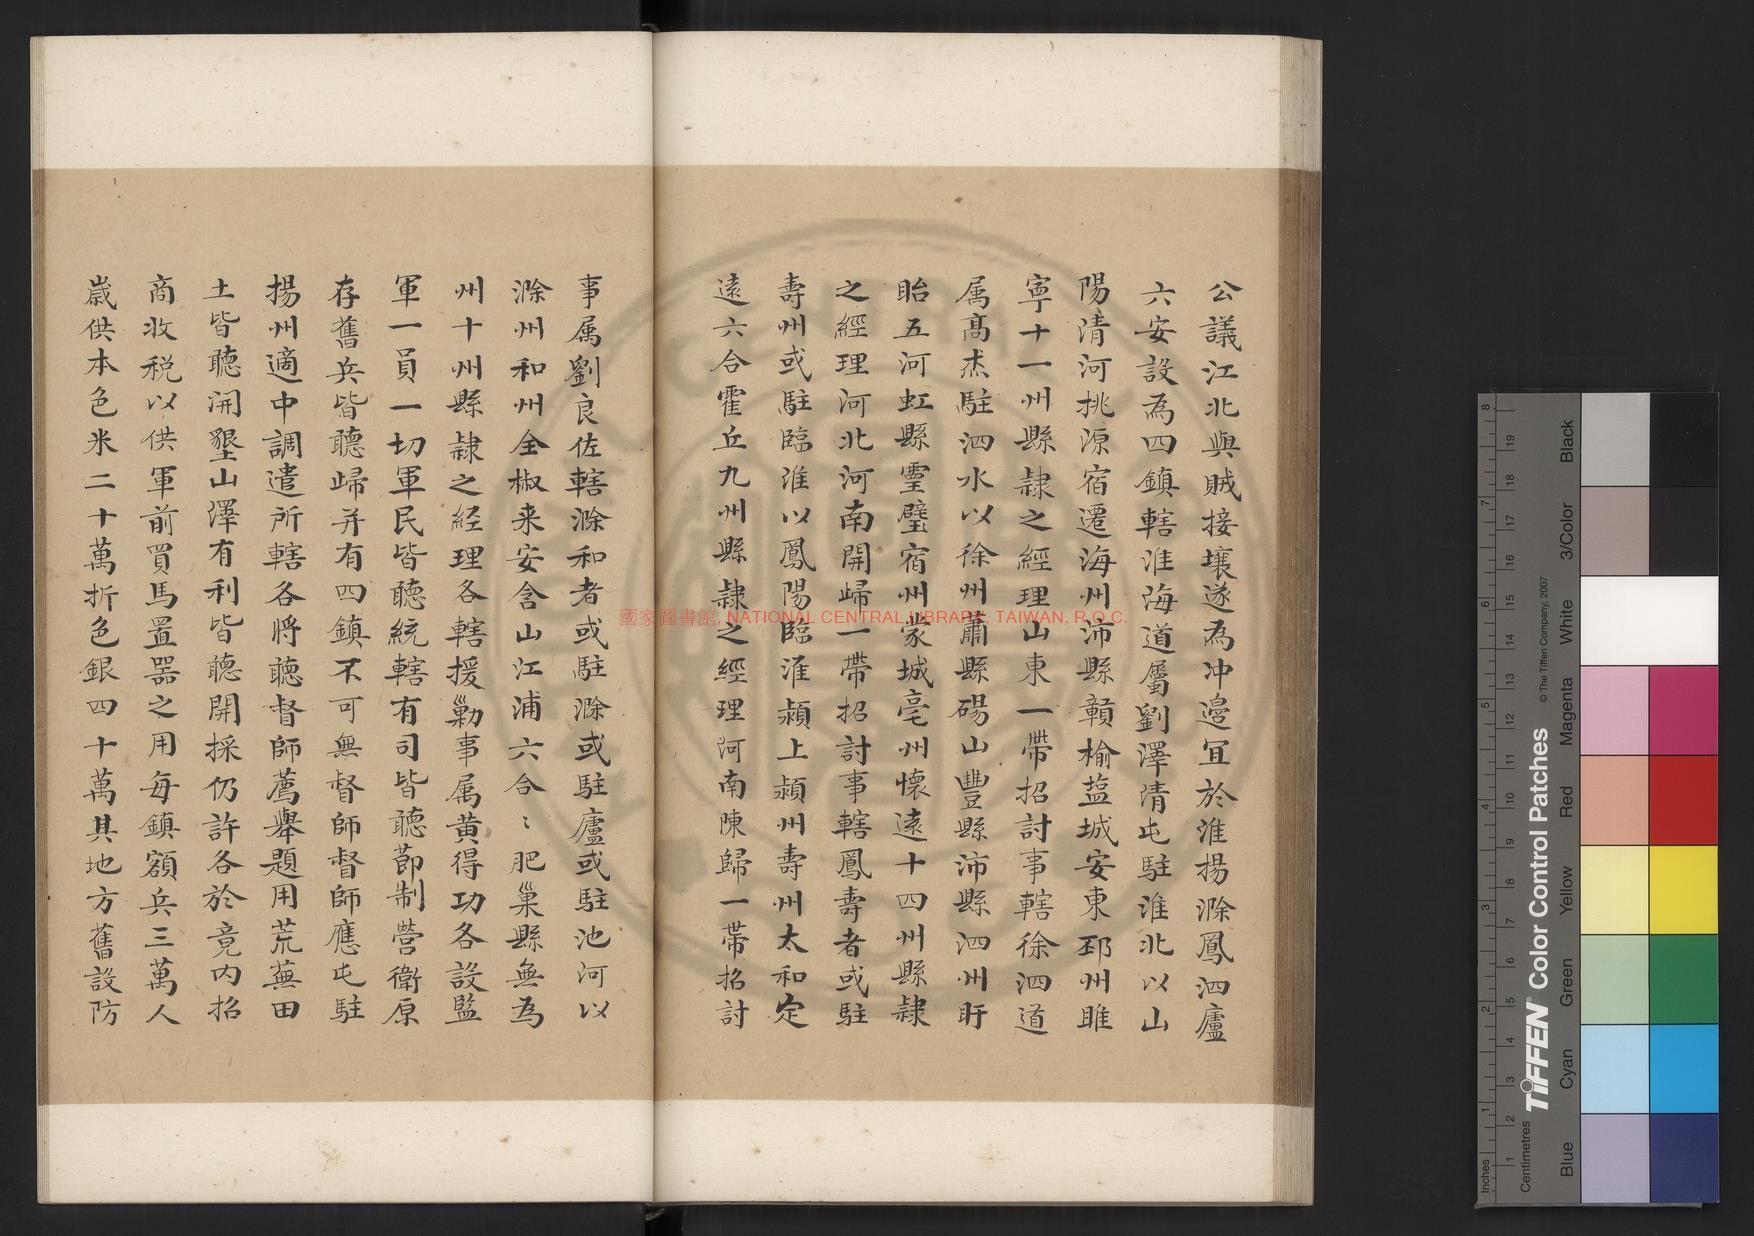 公議江北與賊接壤遂為冲邊宜於淮揚滁鳳泗廬
六安設為四鎮轄淮海道屬劉澤清屯駐淮北以山
陽清河挑源宿遷海州沛縣贛榆盐城安東邳州睢
寧十一州縣隸之經理山東一帶招討事轄徐泗道
属髙杰駐泗水以徐州蕭縣碭山豐縣沛縣泗州盱
眙五河虹縣靈璧宿州蒙城亳州懷遠十四州縣隸
之經理河北河南開歸一帶招討事轄鳳壽者或駐
壽州或駐臨淮以鳳陽臨淮潁上潁州壽州太和定
遠六合霍丘九州縣隸之經理河南陳歸一帶招討
事属劉良佐轄滁和者或駐滁或駐廬或駐池河以
滁州和州全椒来安含山江浦六合〻肥巢縣無為
州十州縣隸之経理各轄援勦事属黄得功各設監
軍一員一切軍民皆聽統轄有司皆聽節制營衛原
存舊兵皆聽歸并有四鎮不可無督師督師應屯駐
揚州適中調遣所轄各將聽督師薦舉題用荒蕪田
土皆聽開墾山澤有利皆聽開採仍許各於竟内招
商收税以供軍前買馬置器之用每鎮額兵三萬人
歲供本色米二十萬折色銀四十萬其地方舊設防
國家圖書館, NATIONAL CENTRAL LIBRARY, TAIWAN, R.O.C.
TIFFEN® Color Control Patches
© The Tiffen Company, 2007
Inches
Centimetres
Blue
Cyan
Green
Yellow
Red
Magenta
White
3/Color
Black